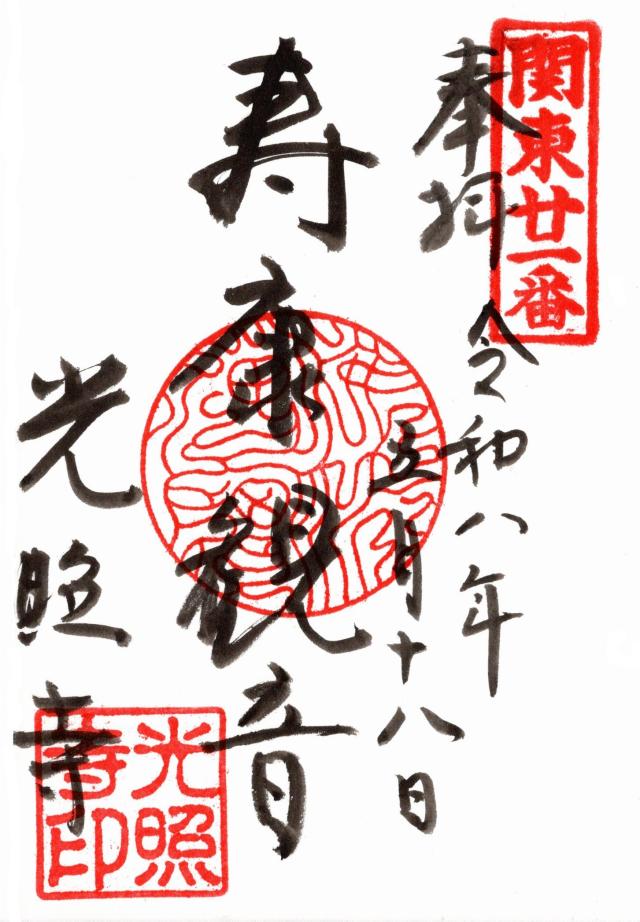 関東廿一番
奉拝
令和八年
五月十八日
寿康観音
光照寺
光照
寺印